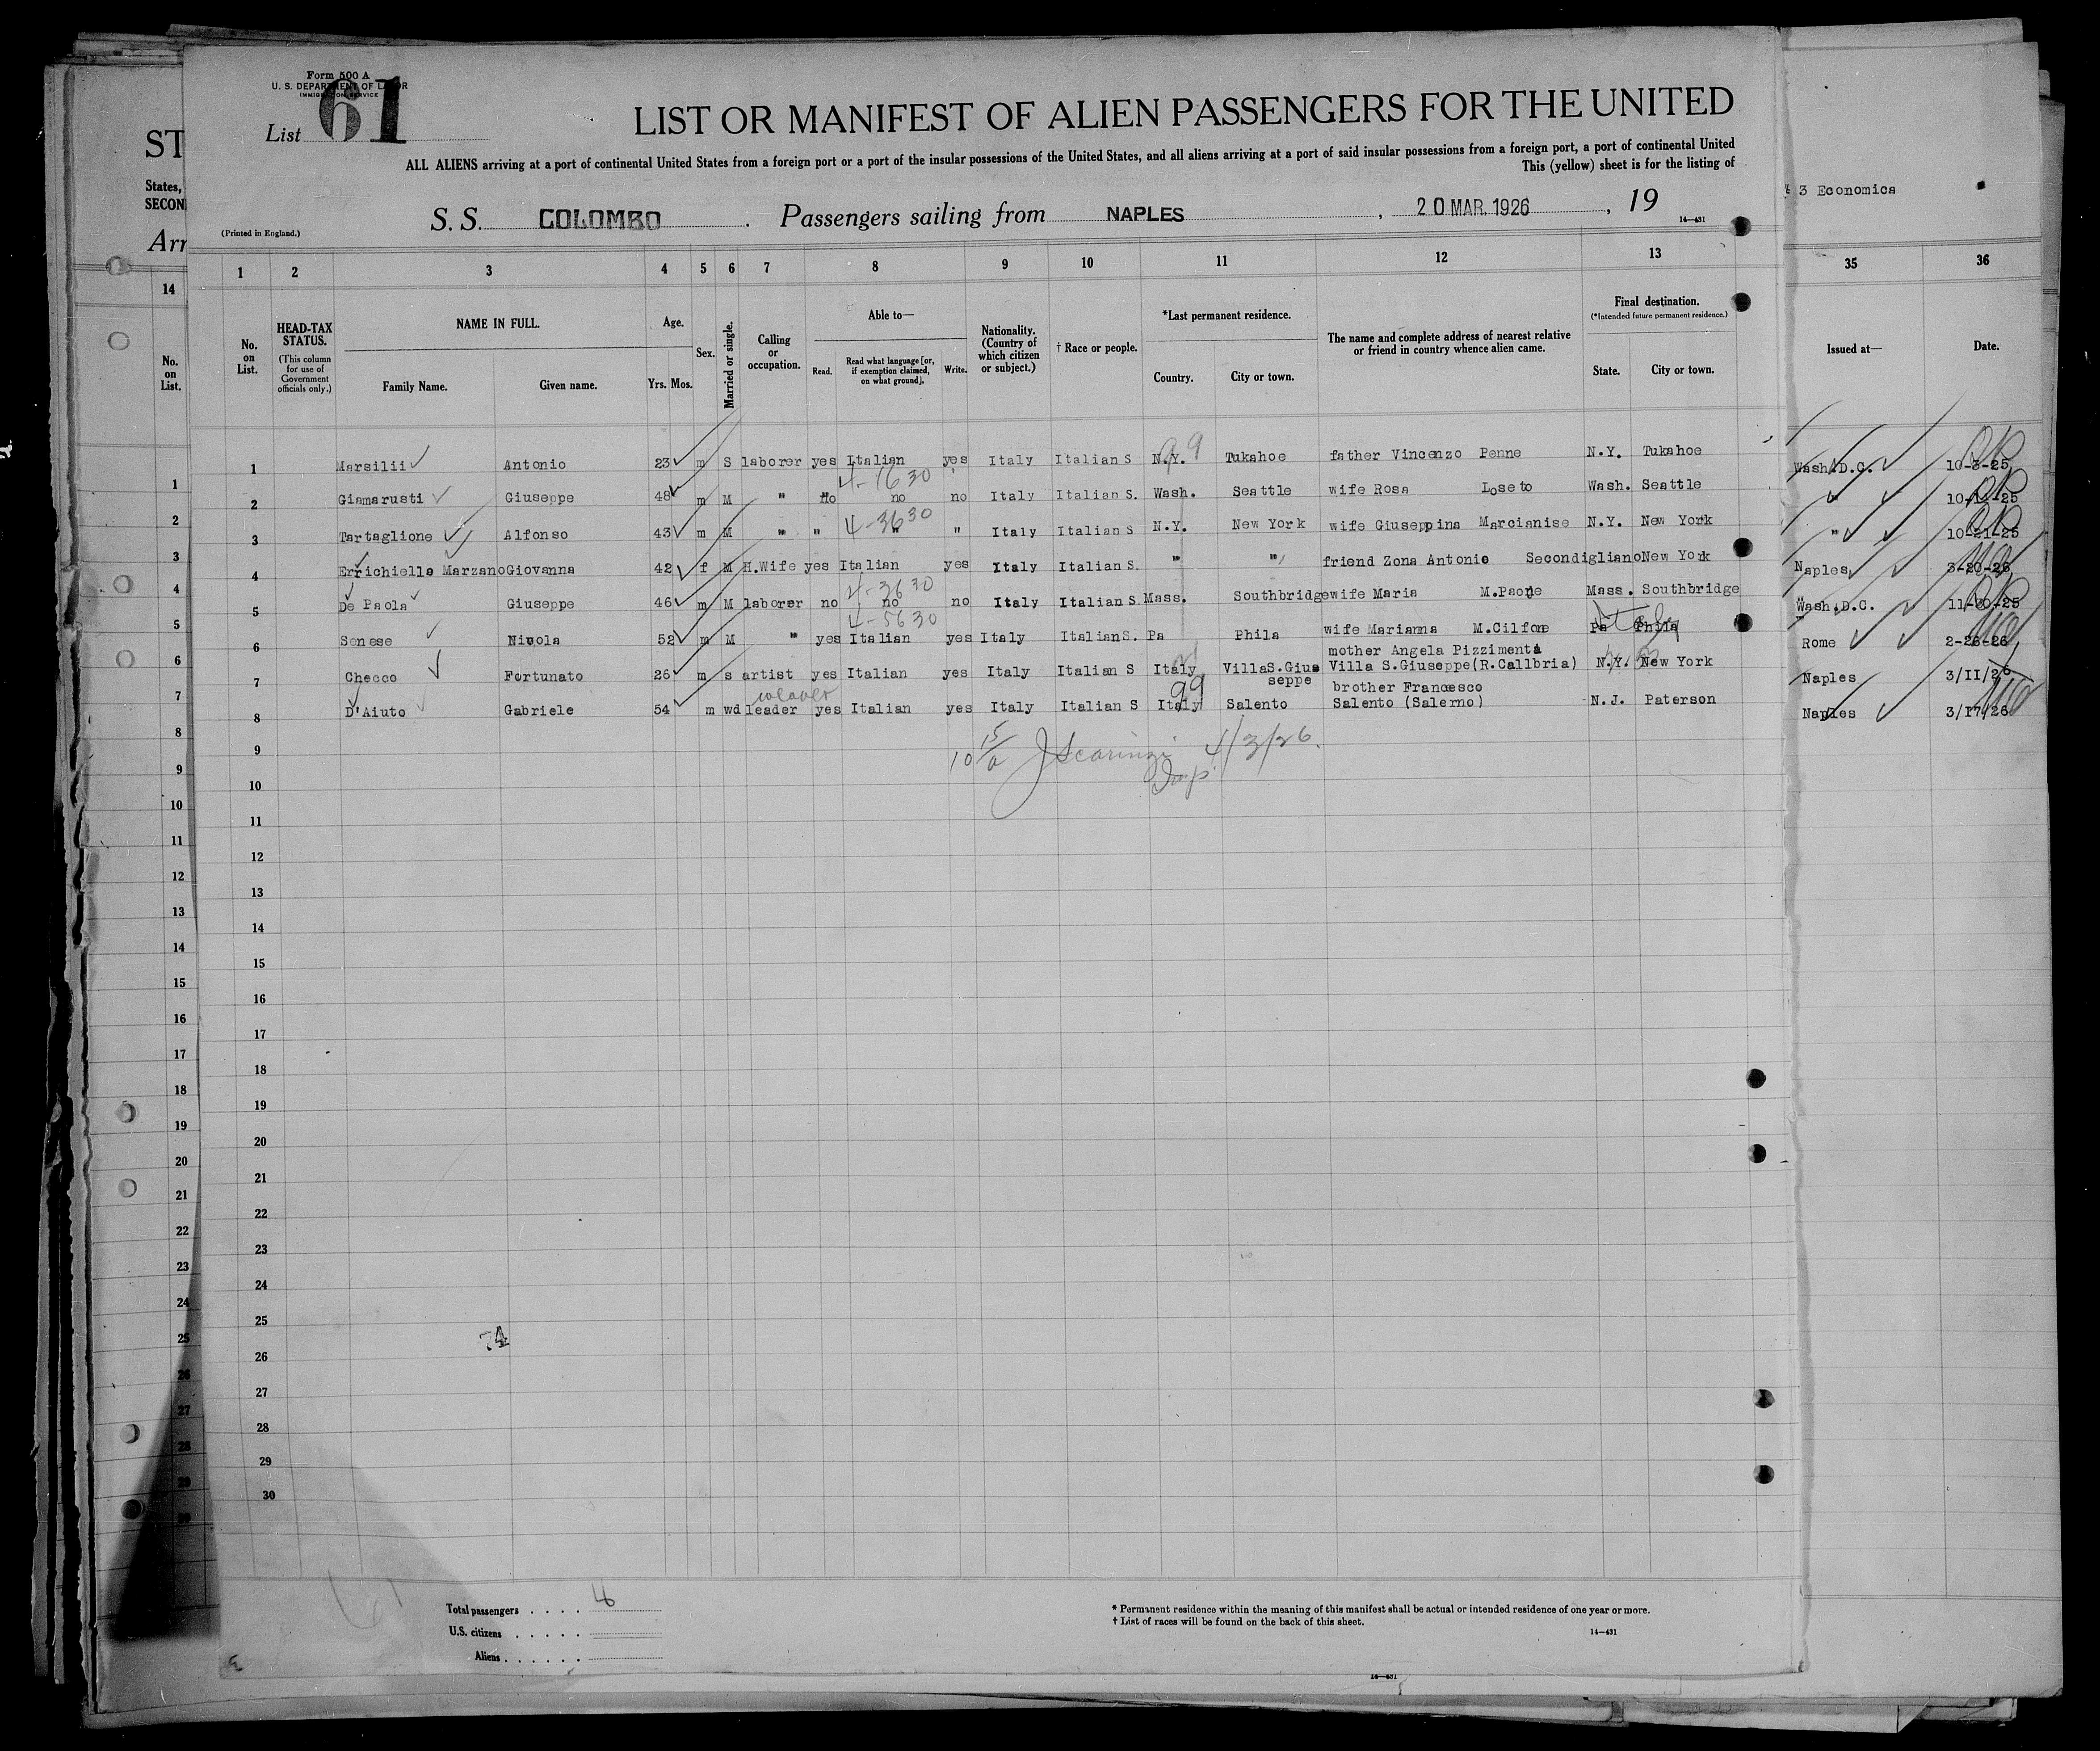 Form 500 A
U. S. DEPARTMENT OF LABOR
IMMIGRATION SERVICE
List 61
LIST OR MANIFEST OF ALIEN PASSENGERS FOR THE UNITED
ALL ALIENS arriving at a port of continental United States from a foreign port or a port of the insular possessions of the United States, and all aliens arriving at a port of said insular possessions from a foreign port, a port of continental United
This (yellow) sheet is for the listing of
(Printed in England.) S. S. COLOMBO. Passengers sailing from NAPLES, 20 MAR. 1926, 19
14—431
ST
States,
SECON
Arr
3 Economics
1 2 3 4 5 6 7 8 9 10 11 12 13
14 35 36
No. on List.
HEAD-TAX STATUS.
(This column for use of Government officials only.)
NAME IN FULL.
Family Name. Given name.
Age.
Yrs. Mos.
Sex.
Married or single.
Calling or occupation.
Able to—
Read. Read what language [or, if exemption claimed, on what ground]. Write.
Nationality. (Country of which citizen or subject.)
† Race or people.
*Last permanent residence.
Country. City or town.
The name and complete address of nearest relative or friend in country whence alien came.
Final destination.
(*Intended future permanent residence.)
State. City or town.
No. on List.
Issued at— Date.
1 Marsilii Antonio 23 m S laborer yes Italian yes Italy Italian S N.Y. Tukahoe father Vincenzo Penne N.Y. Tukahoe Wash.D.C. 10-3-25
99
4-1630
2 Giamarusti Giuseppe 48 m M " no no no Italy Italian S. Wash. Seattle wife Rosa Loseto Wash. Seattle "
4-3630
3 Tartaglione Alfonso 43 m M " " " " Italy Italian S N.Y. New York wife Giuseppina Marcianise N.Y. New York " 10-21-25
4 Errichiello Marzano Giovanna 42 f M H.Wife yes Italian yes Italy Italian S. " " friend Zona Antonio Secondigliano New York Naples 3-20-26
4-3630
5 De Paola Giuseppe 46 m M laborer no no no Italy Italian S. Mass. Southbridge wife Maria Mass. Southbridge Wash.D.C.
4-5630
6 Senese Nicola 52 m M " yes Italian yes Italy Italian S. Pa Phila wife Marianna M.Cilfone Pa Phila Rome 2-26-26
Italy
mother Angela Pizzimenti
7 Checco Fortunato 26 m s artist yes Italian yes Italy Italian S Italy Villa S.Giuseppe Villa S.Giuseppe(R.Callbria) N.Y. New York Naples 3/11/26
weaver 99 brother Francesco
8 D'Aiuto Gabriele 54 m wd leader yes Italian yes Italy Italian S Italy Salento Salento (Salerno) N.J. Paterson Naples 3/17/26
9
J Scarinzi 4/3/26.
Insp.
10
11
12
13
14
15
16
17
18
19
20
21
22
23
24
25
74
26
27
28
29
30
Total passengers
U.S. citizens
Aliens
* Permanent residence within the meaning of this manifest shall be actual or intended residence of one year or more.
† List of races will be found on the back of this sheet.
14—431